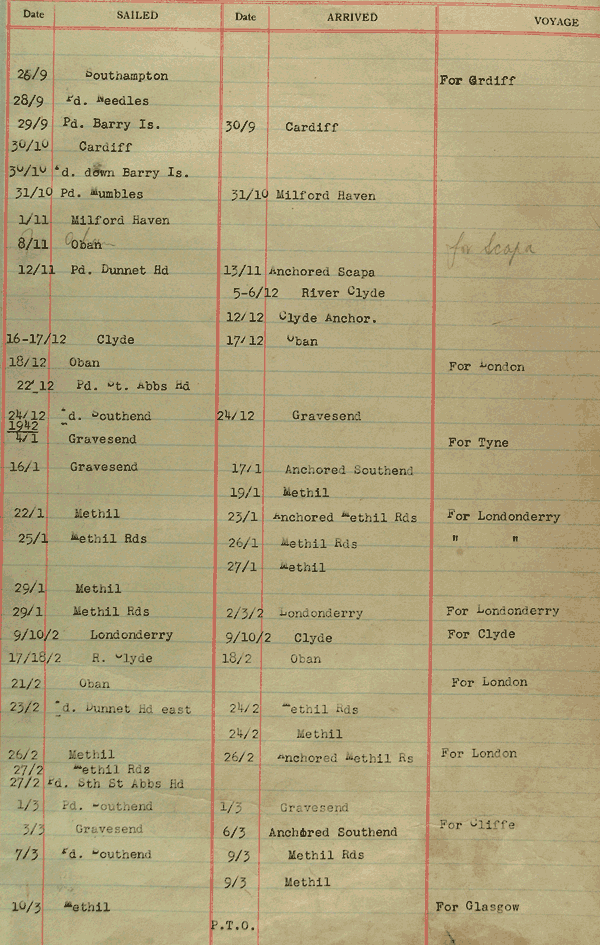 Date SAILED Date ARRIVED VOYAGE
26/9 Southampton For Crdiff
28/9 Pd. Needles
29/9 Pd. Barry Is. 30/9 Cardiff
30/10 Cardiff
30/10 Pd. down Barry Is.
31/10 Pd. Mumbles 31/10 Milford Haven
1/11 Milford Haven
8/11 Oban for Scapa
12/11 Pd. Dunnet Hd 13/11 Anchored Scapa
5-6/12 River Clyde
12/12 Clyde Anchor.
16-17/12 Clyde 17/12 Oban
18/12 Oban For London
22_12 Pd. St. Abbs Hd
24/12 Pd. Southend 24/12 Gravesend
1942
4/1 Gravesend For Tyne
16/1 Gravesend 17/1 Anchored Southend
19/1 Methil
22/1 Methil 23/1 Anchored Methil Rds For Londonderry
25/1 Methil Rds 26/1 Methil Rds " "
27/1 Methil
29/1 Methil
29/1 Methil Rds 2/3/2 Londonderry For Londonderry
9/10/2 Londonderry 9/10/2 Clyde For Clyde
17/18/2 R. Clyde 18/2 Oban
21/2 Oban For London
23/2 Pd. Dunnet Hd east 24/2 Methil Rds
24/2 Methil
26/2 Methil 26/2 Anchored Methil Rs For London
27/2 Methil Rds
27/2 Pd. Sth St Abbs Hd
1/3 Pd. Southend 1/3 Gravesend
3/3 Gravesend 6/3 Anchored Southend For Cliffe
7/3 Pd. Southend 9/3 Methil Rds
9/3 Methil
10/3 Methil For Glasgow
P.T.O.